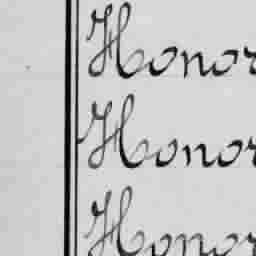 Honor
Honor
Honor